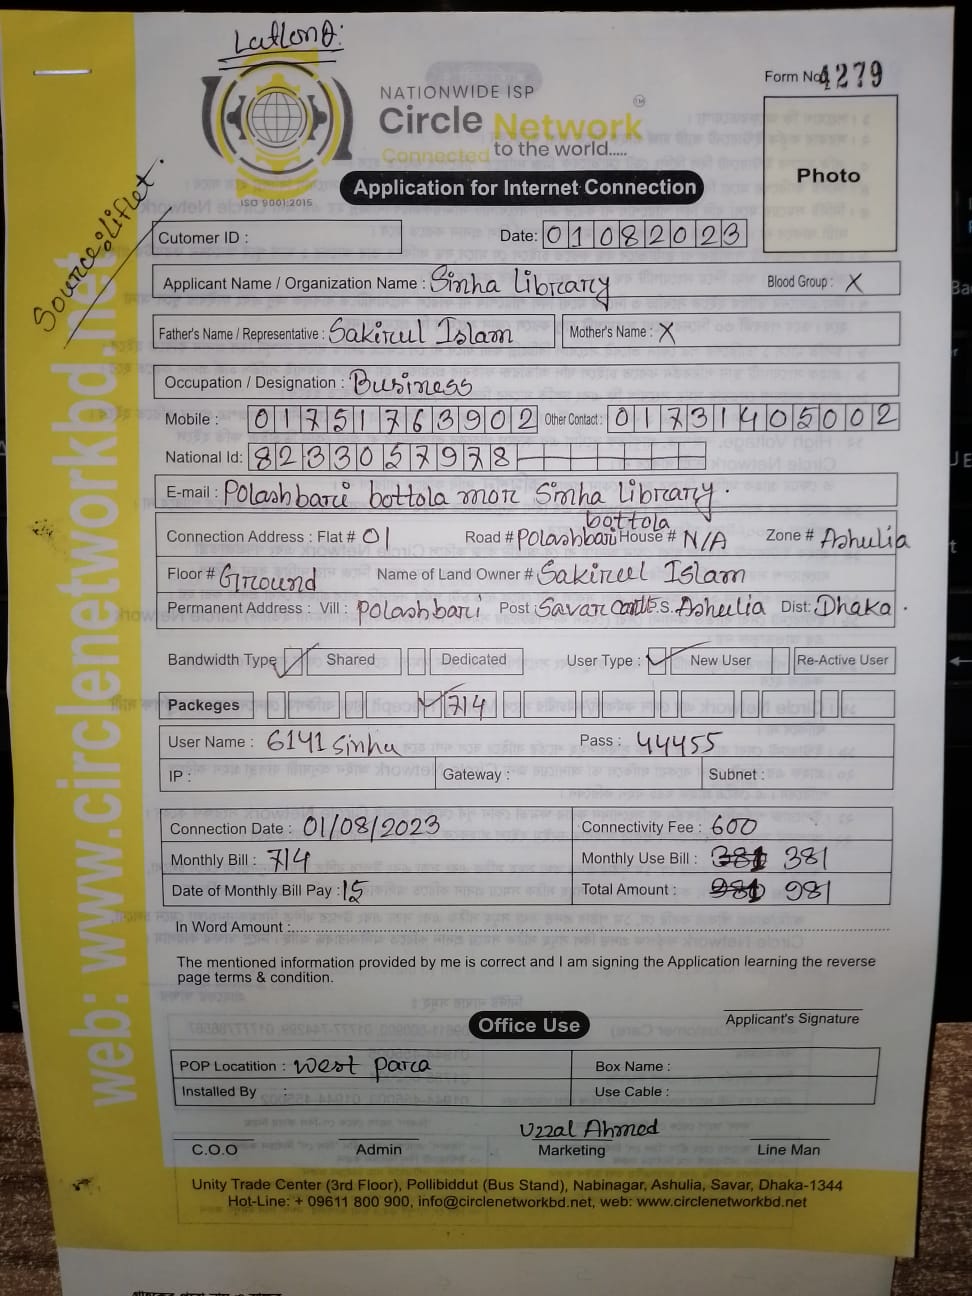 Form No. 4279
NATIONWIDE ISP
Circle Network
Connected to the world.....
ISO 9001:2015
Photo
Application for Internet Connection
Cutomer ID :
Date: 01082023
Applicant Name / Organization Name : Sinha Library
Blood Group : X
Father's Name / Representative : Sakirul Islam
Mother's Name : X
Occupation / Designation : Business
Mobile : 01751763902 Other Contact : 01731405002
National Id: 8233057978
E-mail : Polashbari bottola mor Sinha Library.
Connection Address : Flat # 01 Road # Polashbari bottola House # N/A Zone # Ashulia
Floor # Ground Name of Land Owner # Sakirul Islam
Permanent Address : Vill : Polashbari Post : Savar Cantt P.S. Ashulia Dist: Dhaka.
Bandwidth Type Shared Dedicated User Type : New User Re-Active User
Packeges 714
User Name : 6141 sinha Pass : 44455
IP : Gateway : Subnet :
Connection Date : 01/08/2023 Connectivity Fee : 600
Monthly Bill : 714 Monthly Use Bill : 381
Date of Monthly Bill Pay : 15 Total Amount : 981
In Word Amount :
The mentioned information provided by me is correct and I am signing the Application learning the reverse
page terms & condition.
Applicant's Signature
Office Use
POP Locatition : West Parca Box Name :
Installed By : Use Cable :
Uzzal Ahmed
C.O.O Admin Marketing Line Man
Unity Trade Center (3rd Floor), Pollibiddut (Bus Stand), Nabinagar, Ashulia, Savar, Dhaka-1344
Hot-Line: + 09611 800 900, info@circlenetworkbd.net, web: www.circlenetworkbd.net
web: www.circlenetworkbd.net